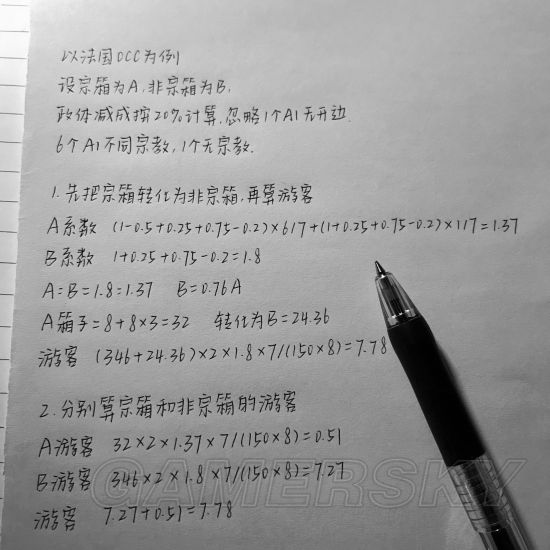 以法国OCC为例
设宗箱为A,非宗箱为B,
政体减成按20%计算,忽略1个AI无开边.
6个AI不同宗教,1个无宗教.
1.先把宗箱转化为非宗箱,再算游客
A系数 (1-0.5+0.25+0.75-0.2)×6/7+(1+0.25+0.75-0.2)×1/7=1.37
B系数 1+0.25+0.75-0.2=1.8
A=B=1.8=1.37 B=0.76A
A箱子=8+8×3=32 转化为B=24.36
游客 (346+24.36)×2×1.8×7/(150×8)=7.78
2.分别算宗箱和非宗箱的游客
A游客 32×2×1.37×7/(150×8)=0.51
B游客 346×2×1.8×7/(150×8)=7.27
游客 7.27+0.51=7.78
GAMERSKY